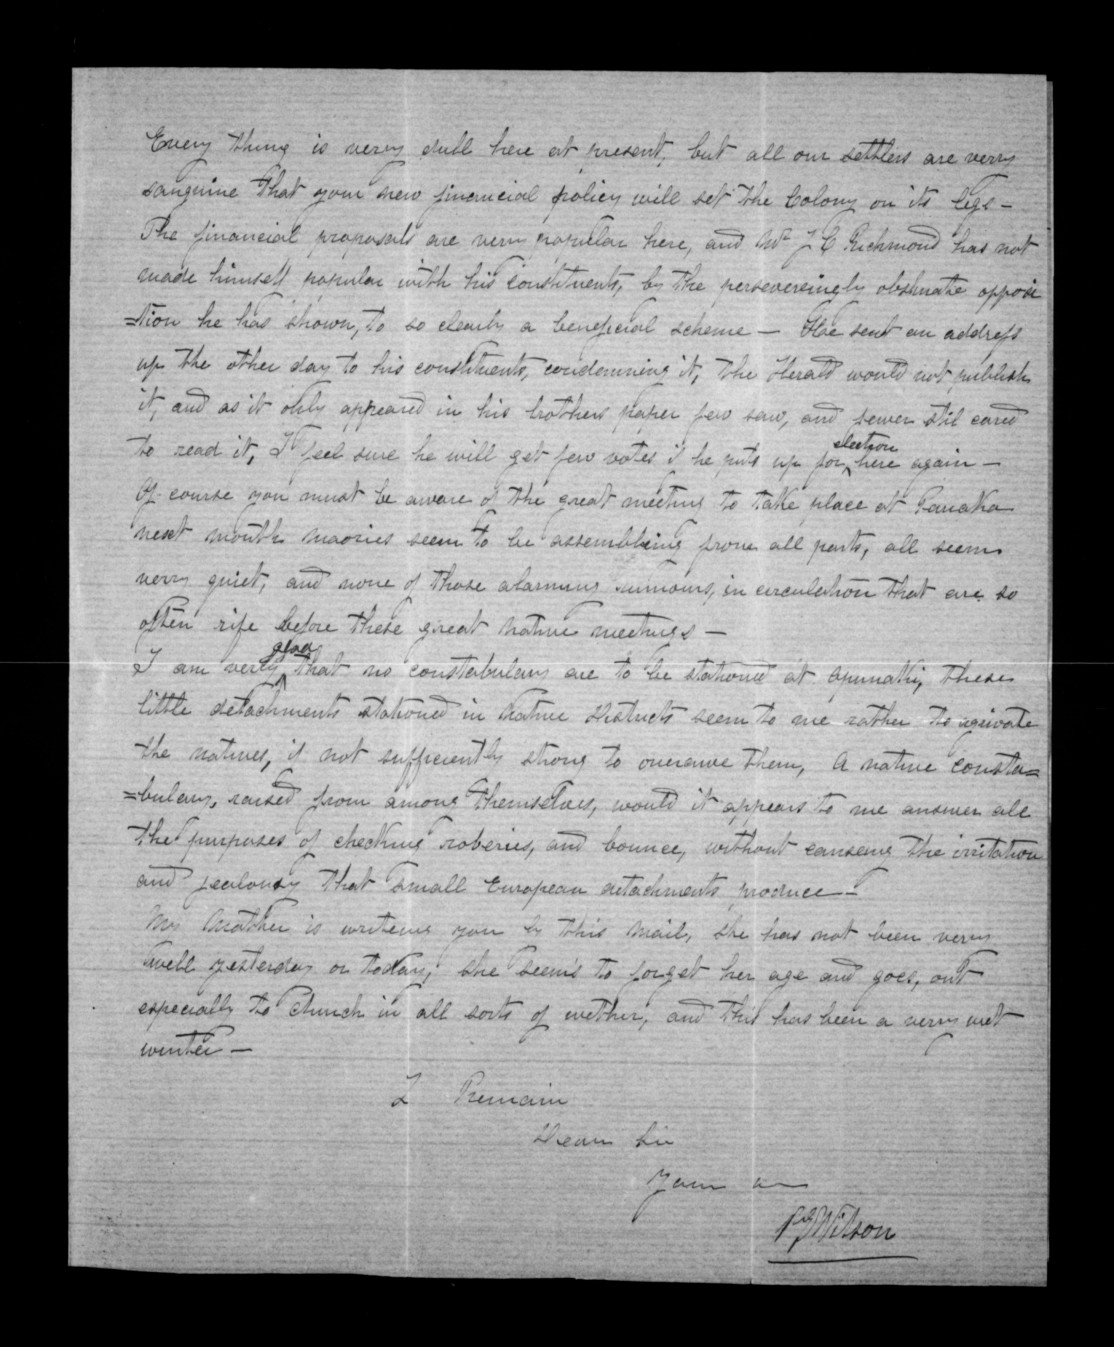 Every thing is very dull here at present, but all our settlers are very
sanguine that your new financial policy will set the Colony on its legs -
The financial proposals are very popular here, and Mr J C Richmond has not
made himself popular with his constituents, by the perseveringly obstinate opposi
=tion he has shown, to so clearly a beneficial scheme - He sent an address
up the other day to his constituents, condemning it, the Herald would not publish
it, and as it only appeared in his brothers paper few saw, and fewer stil cared
to read it, I feel sure he will get few votes if he puts up for election here again -
Of course you must be aware of the great meeting to take place at
next month maories seem to be assembling from all parts, all seems
very quiet, and none of those alarming rumours, in circulation that are so
often rife before these great native meetings -
I am very glad that no constabulary are to be stationed at Opunaki, these
little detachments stationed in Native Districts seem to me rather to agrivate
the natives, if not sufficiently strong to overawe them, A native consta=
=bulary, raised from among themselves, would it appears to me answer all
the purposes of checking roberies, and bounce, without causeing the irritation
and jealousy that small European detachments produce -
My Mother is writeing you by this Mail, she has not been very
well yesterday or today; she seem's to forget her age and goes, out
especially to Church in all sorts of wether, and this has been a very wet
winter -
I Remain
Dear Sir
Wilson